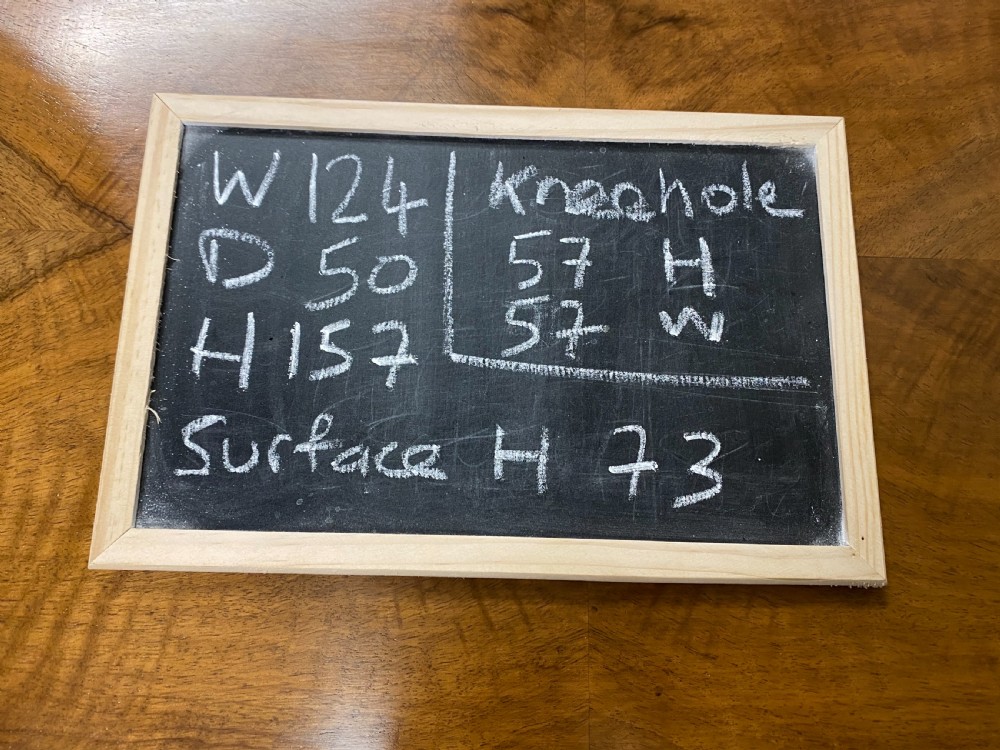 W 124
D 50
H 157
Kneehole
57 H
57 W
Surface H 73